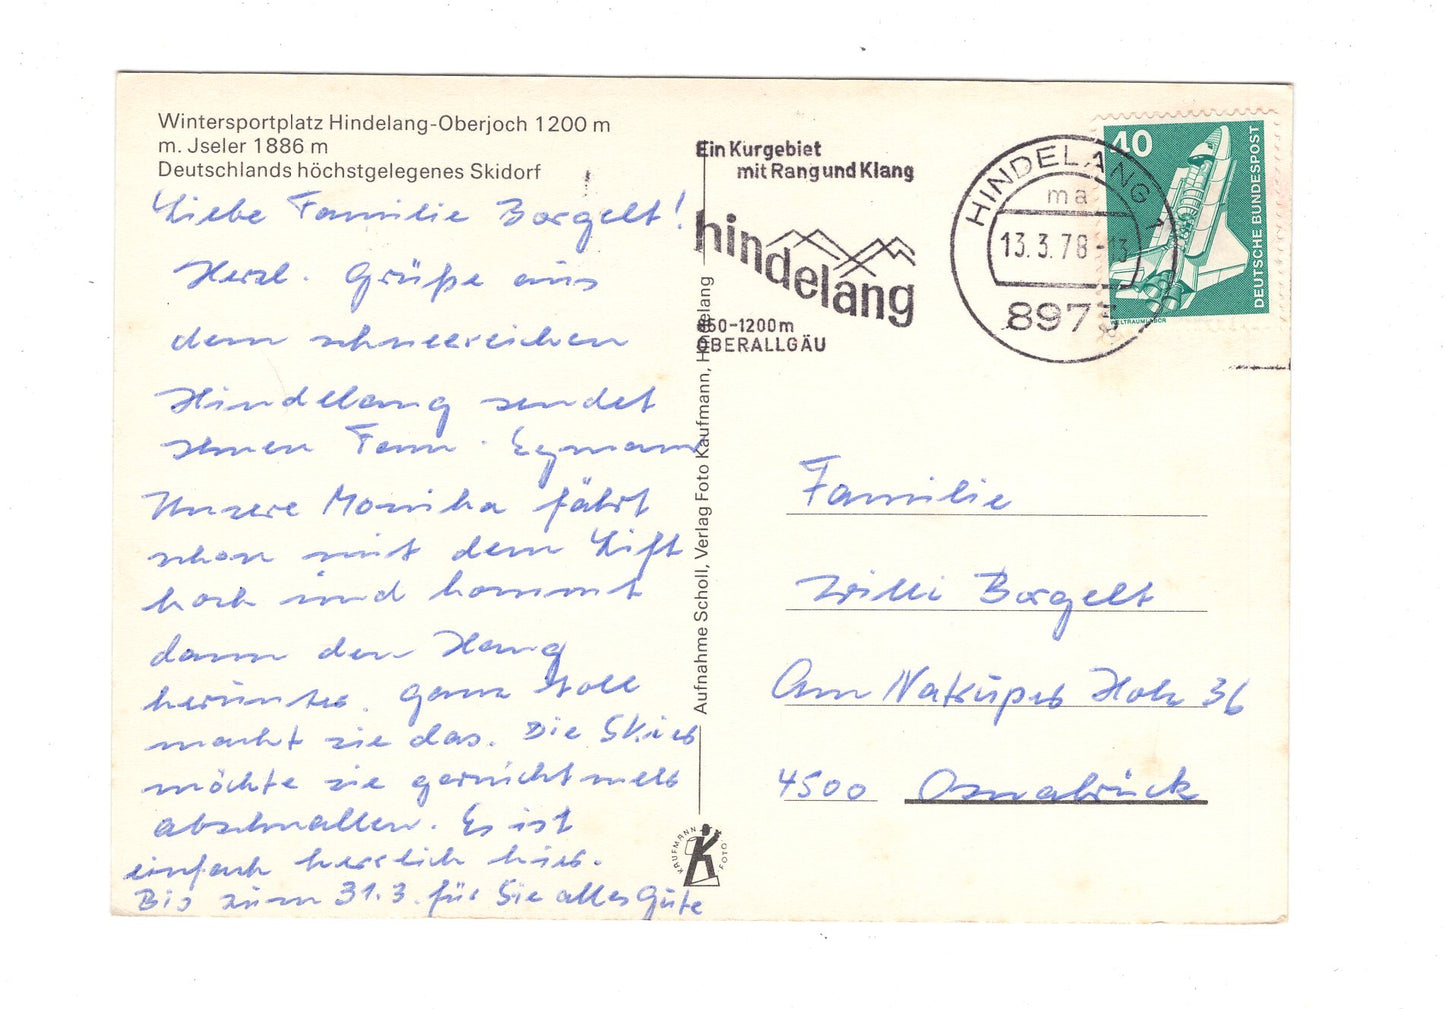 Wintersportplatz Hindelang-Oberjoch 1200 m
m. Jseler 1886 m
Deutschlands höchstgelegenes Skidorf
Liebe Familie Borgelt!
Herzl. Grüße aus
dem schneereichen
Hindelang sendet
Ihnen Fam. Eymann
Unsere Monika fährt
schon mit dem Lift
hoch und kommt
dann den Hang
herunter. Ganz toll
macht sie das. Die Skier
möchte sie garnicht mehr
abschnallen. Es ist
einfach herrlich hier.
Bis zum 31.3. für Sie alles Gute
Aufnahme Scholl, Verlag Foto Kaufmann, Hindelang
KAUFMANN FOTO
Ein Kurgebiet
mit Rang und Klang
hindelang
850-1200m
OBERALLGÄU
HINDELANG 1
ma
13.3.78-13
8973
40
DEUTSCHE BUNDESPOST
WELTRAUMLABOR
Familie
Willi Borgelt
Am Natruper Holz 36
4500 Osnabrück